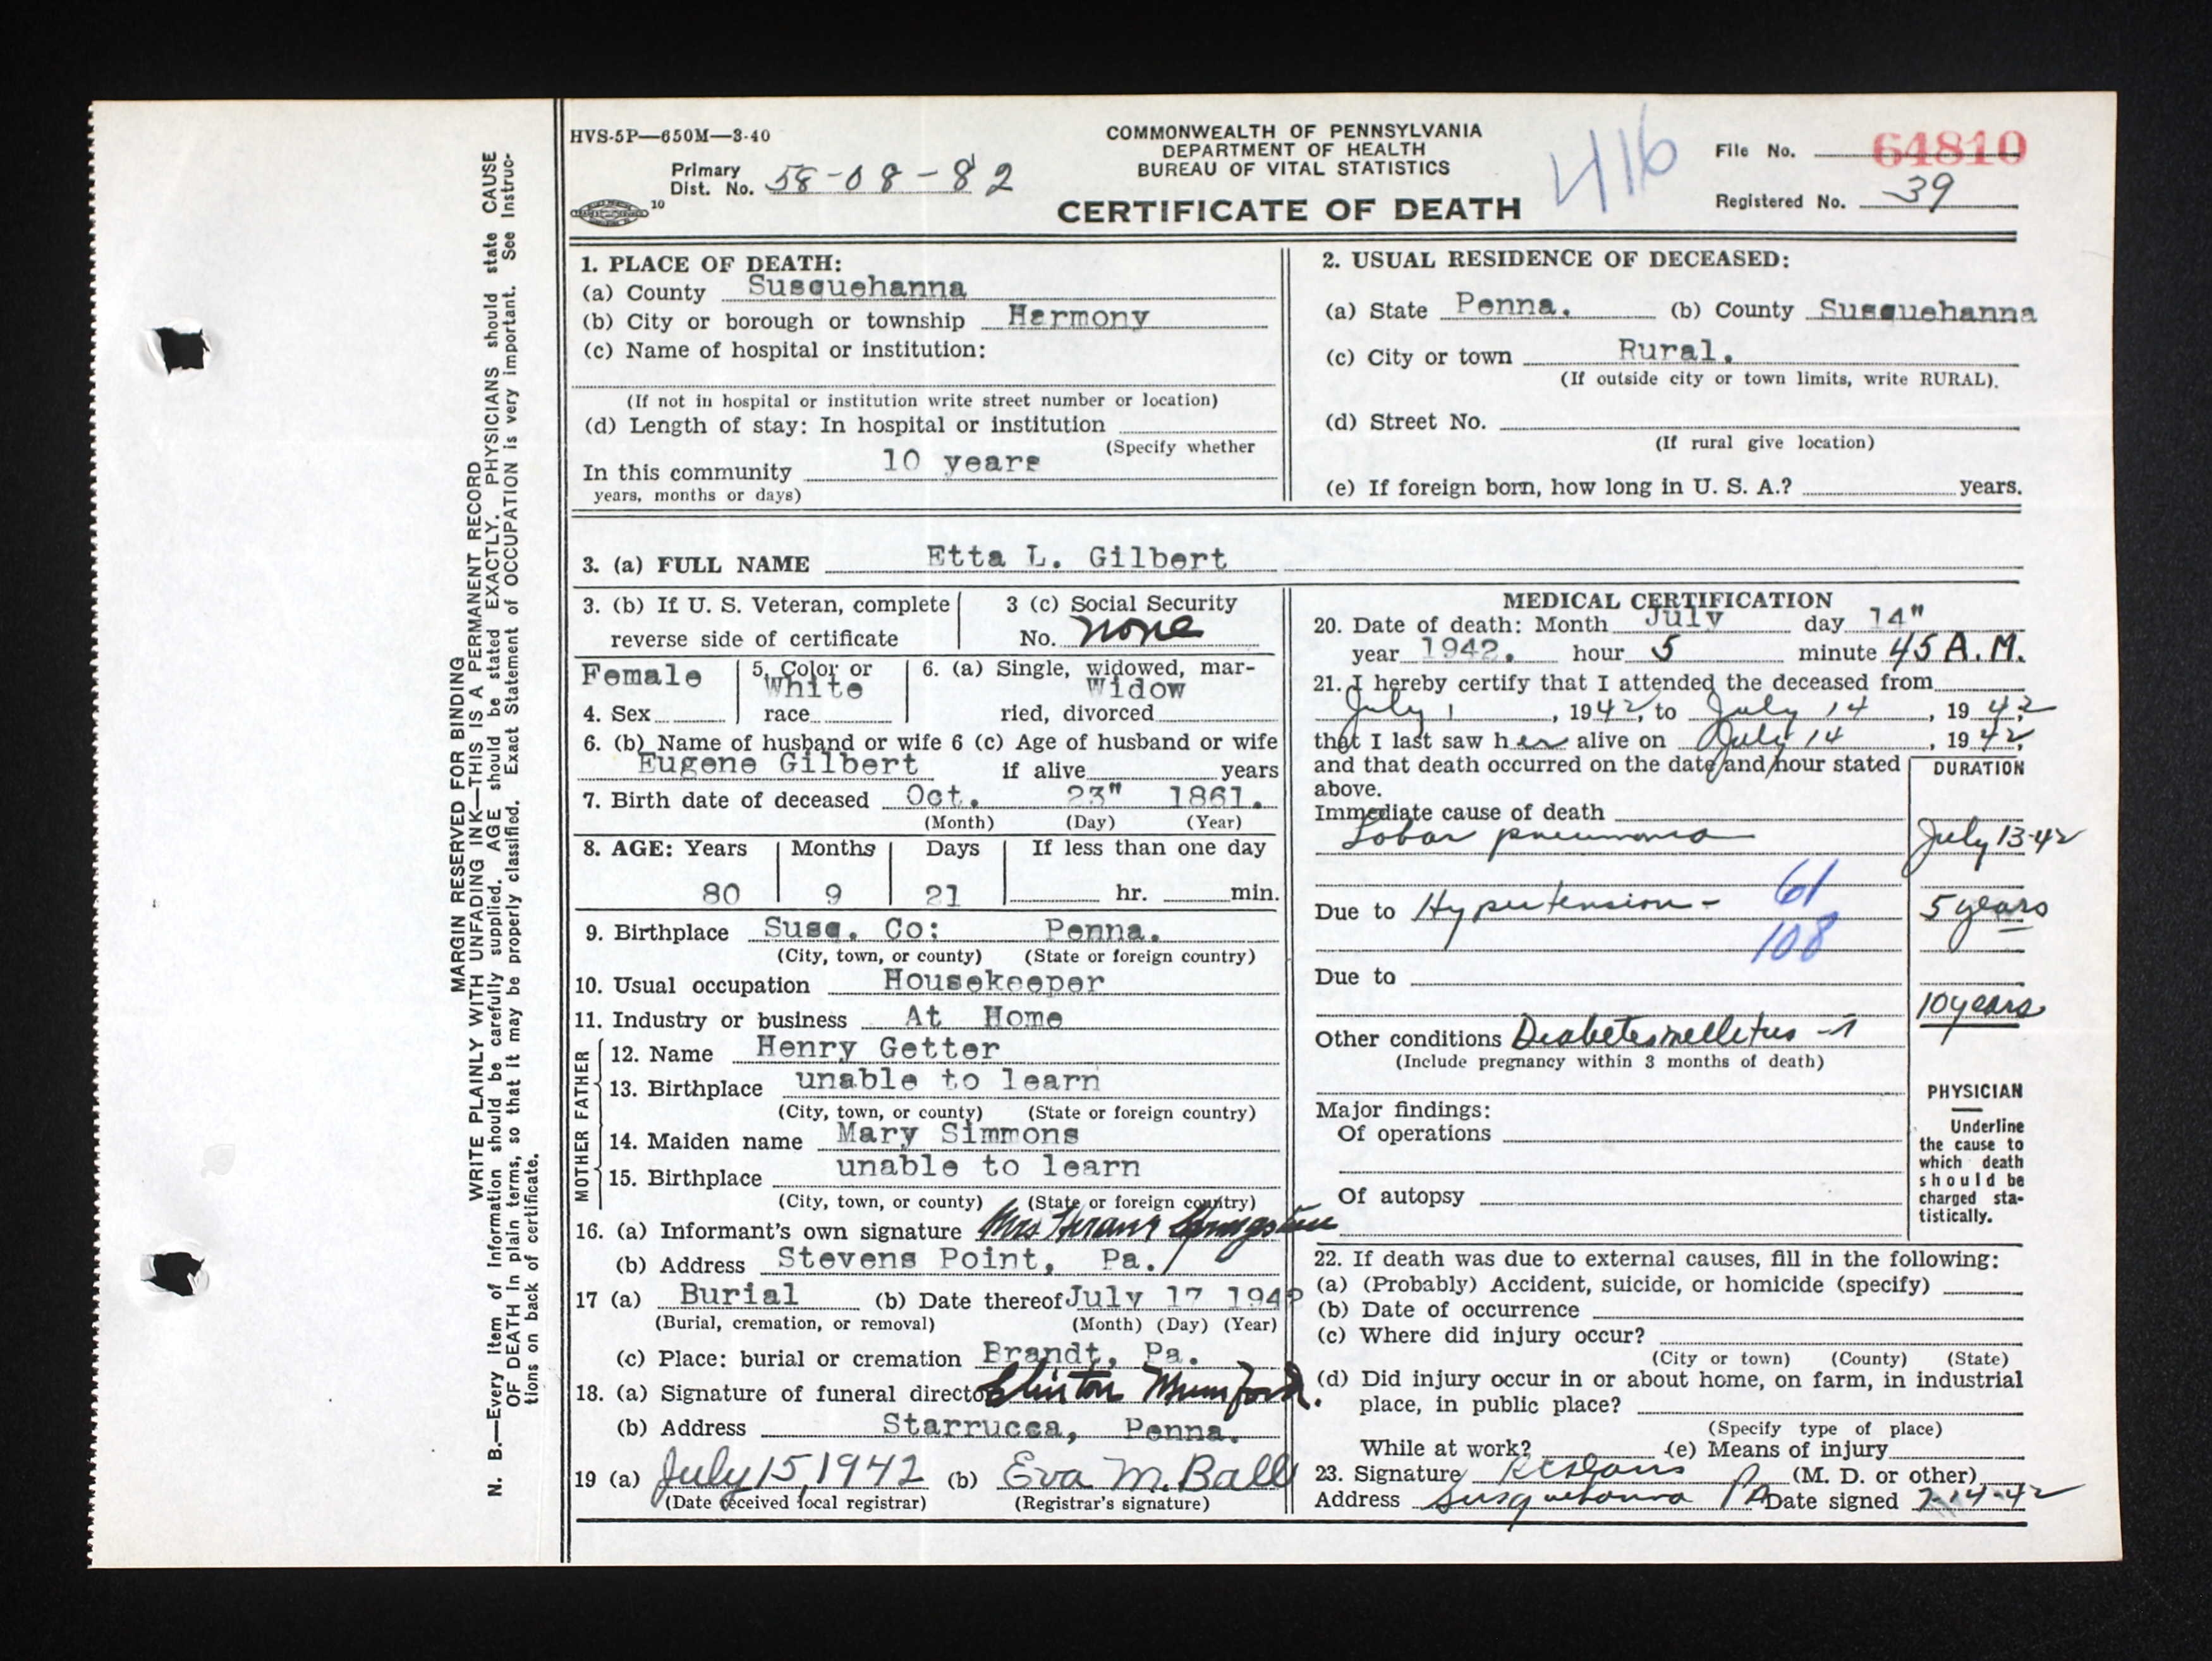 HVS-5P—650M—3-40
COMMONWEALTH OF PENNSYLVANIA
DEPARTMENT OF HEALTH
BUREAU OF VITAL STATISTICS
CERTIFICATE OF DEATH
Primary
Dist. No. 58-08-82
10
416
File No. 64810
Registered No. 39
MARGIN RESERVED FOR BINDING
WRITE PLAINLY WITH UNFADING INK—THIS IS A PERMANENT RECORD
N. B.—Every item of information should be carefully supplied. AGE should be stated EXACTLY. PHYSICIANS should state CAUSE
OF DEATH in plain terms, so that it may be properly classified. Exact Statement of OCCUPATION is very important. See Instruc-
tions on back of certificate.
1. PLACE OF DEATH:
(a) County Susquehanna
(b) City or borough or township Harmony
(c) Name of hospital or institution:
(If not in hospital or institution write street number or location)
(d) Length of stay: In hospital or institution
(Specify whether
In this community 10 years
years, months or days)
2. USUAL RESIDENCE OF DECEASED:
(a) State Penna. (b) County Susquehanna
(c) City or town Rural.
(If outside city or town limits, write RURAL).
(d) Street No.
(If rural give location)
(e) If foreign born, how long in U. S. A.? years.
3. (a) FULL NAME Etta L. Gilbert
3. (b) If U. S. Veteran, complete
reverse side of certificate
3 (c) Social Security
No. none
Female
4. Sex
5. Color or
White
race
6. (a) Single, widowed, mar-
Widow
ried, divorced
6. (b) Name of husband or wife 6 (c) Age of husband or wife
Eugene Gilbert if alive years
7. Birth date of deceased Oct. 23" 1861.
(Month) (Day) (Year)
8. AGE: Years Months Days If less than one day
80 9 21 hr. min.
9. Birthplace Susq. Co: Penna.
(City, town, or county) (State or foreign country)
10. Usual occupation Housekeeper
11. Industry or business At Home
FATHER
12. Name Henry Getter
13. Birthplace unable to learn
(City, town, or county) (State or foreign country)
MOTHER
14. Maiden name Mary Simmons
15. Birthplace unable to learn
(City, town, or county) (State or foreign country)
16. (a) Informant's own signature Mrs
(b) Address Stevens Point, Pa.
17 (a) Burial (b) Date thereof July 17 1942
(Burial, cremation, or removal) (Month) (Day) (Year)
(c) Place: burial or cremation Brandt, Pa.
18. (a) Signature of funeral director Clinton Mumford.
(b) Address Starrucca, Penna.
19 (a) July 15, 1942 (b) Eva M. Ball
(Date received local registrar) (Registrar's signature)
MEDICAL CERTIFICATION
20. Date of death: Month July day 14"
year 1942. hour 5 minute 45 A.M.
21. I hereby certify that I attended the deceased from
July 1, 1942, to July 14, 1942,
that I last saw her alive on July 14, 1942,
and that death occurred on the date and hour stated
above.
DURATION
Immediate cause of death
Lobar pneumonia July 13-42
Due to Hypertension - 61 5 years
108
Due to
10 years
Other conditions Diabetes mellitus
(Include pregnancy within 3 months of death)
Major findings:
Of operations
Of autopsy
PHYSICIAN
Underline
the cause to
which death
should be
charged sta-
tistically.
22. If death was due to external causes, fill in the following:
(a) (Probably) Accident, suicide, or homicide (specify)
(b) Date of occurrence
(c) Where did injury occur?
(City or town) (County) (State)
(d) Did injury occur in or about home, on farm, in industrial
place, in public place?
(Specify type of place)
While at work? (e) Means of injury
23. Signature (M. D. or other)
Address Susquehanna PA Date signed 7-14-42